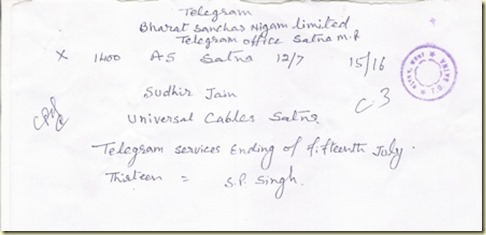 Telegram
Bharat Sanchar Nigam limited
Telegram office Satna M.P
X 1400 A5 Satna 12/7 15/16
C3
Sudhir Jain
Universal Cables Satna
Telegram services Ending of fifteenth July.
Thirteen =
S.P. Singh.